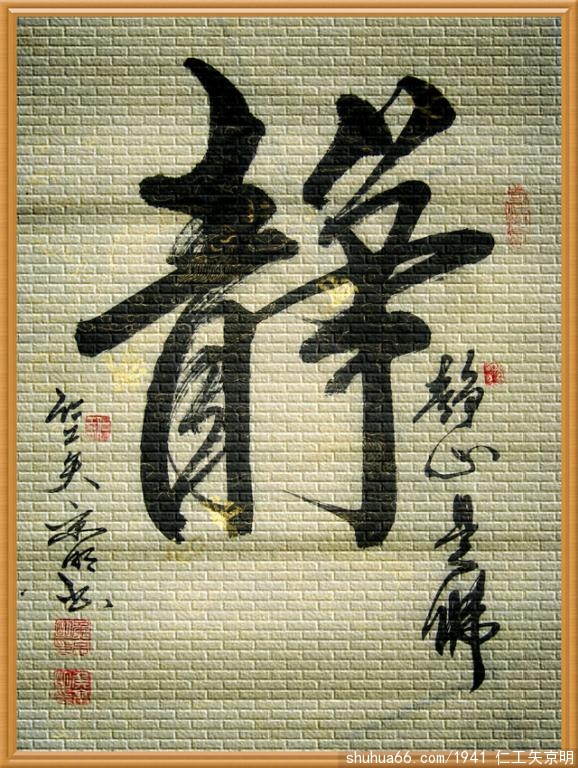 静
静心是佛
仁工矢京明书
shuhua66.com/1941 仁工矢京明